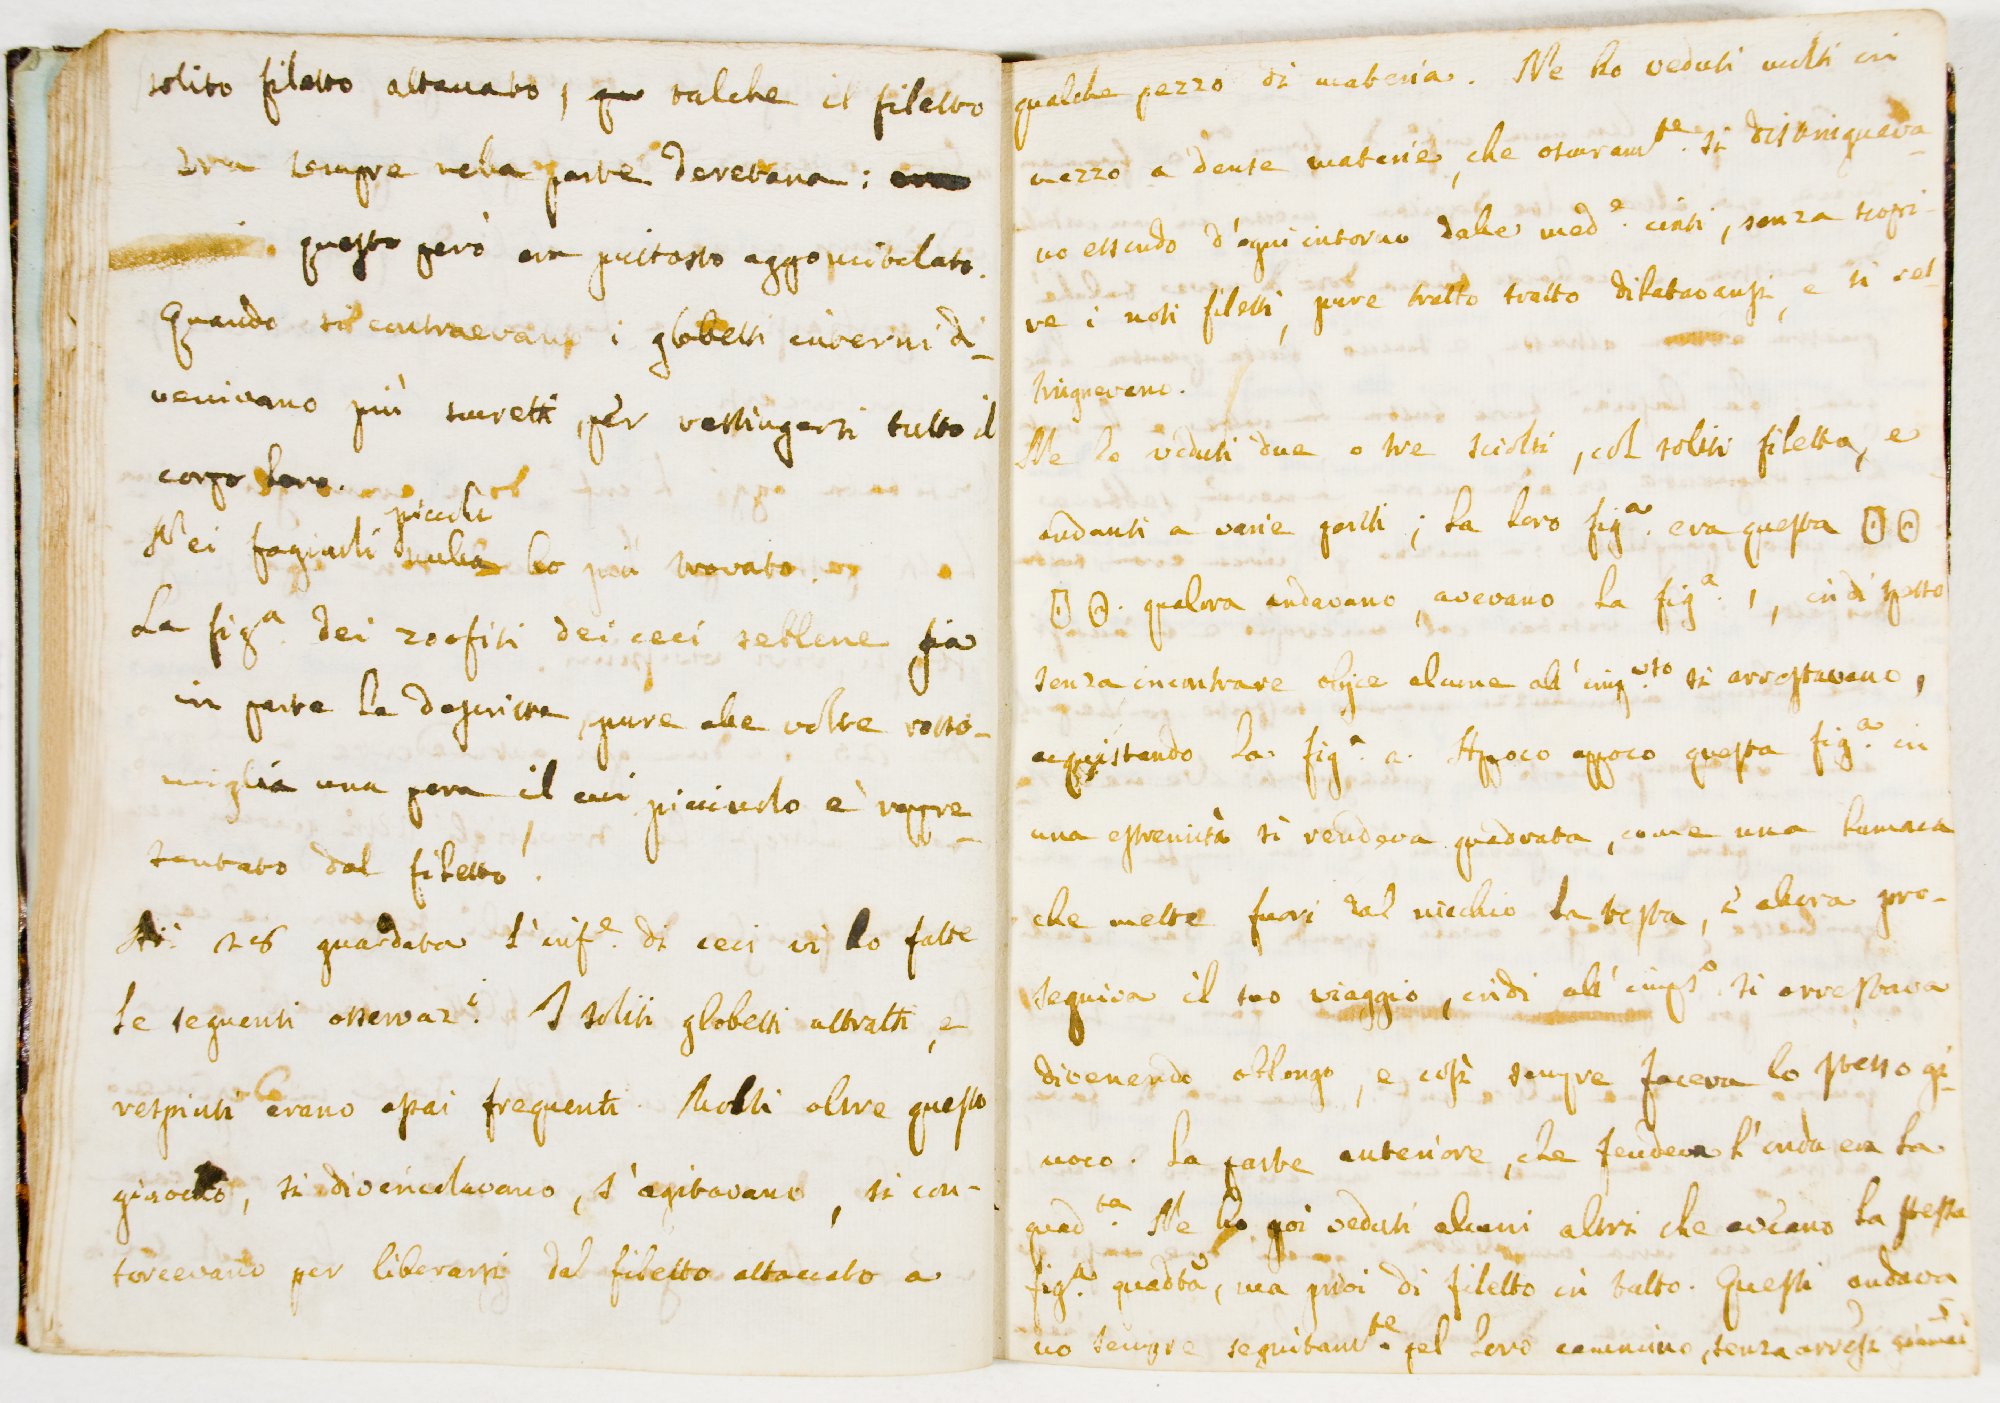 solito filetto attaccato, talche il filetto
era sempre nella parte deretana:
questo però era piuttosto aggomitolato.
Quando si contraevano i globetti interni di-
venivano più scuretti, per restringersi tutto il
corpo loro.
piccoli
Nei fagiuoli nulla ho più trovato.
La fig.a dei zoofiti dei ceci sebbene sia
in parte la descritta, pure alle volte rasso-
miglia una pera, il cui picciuolo è rappre-
sentato dal filetto.
Ai 26 guardata l'inf.e di ceci vi ho fatte
le seguenti osservaz.i I soliti globetti attratti, e
respinti erano assai frequenti. Molti oltre questo
giuoco, si divincolavano, s'agitavano, si con-
torcevano per liberarsi dal filetto attaccato a
qualche pezzo di materia. Ne ho veduti molti in
mezzo a dense materie, che oscuram.te si distingueva-
no essendo d'ogni intorno dalle med.e cinti, senza scopri-
re i noti filetti, pure tratto tratto dilatavansi, e si res-
tringnevano.
Ne ho veduti due o tre sciolti, col soliti filetto, e
andanti a varie parti; la loro fig.a era questa
qualora andavano, avevano la fig.a 1, indi spesso
senza incontrare obice alcuno all'imp.vso si arrestavano,
acquistando la fig.a a. Appoco appoco questa fig.a in
una estremità si rendeva quadrata, come una lumaca
che mette fuori dal nicchio la testa, e allora pro-
seguiva il suo viaggio, indi all'imp.so si arrestava
divenendo oblongo, e così sempre faceva lo stesso gi-
uoco. La parte anteriore, che fendeva l'onda era la
quad.ta Ne ho poi veduti alcuni altri che aveano la stessa
fig.a quadta, ma privi di filetto in tutto. Questi andava
no sempre seguitam.te pel loro cammino, senza arrestarsi giammai